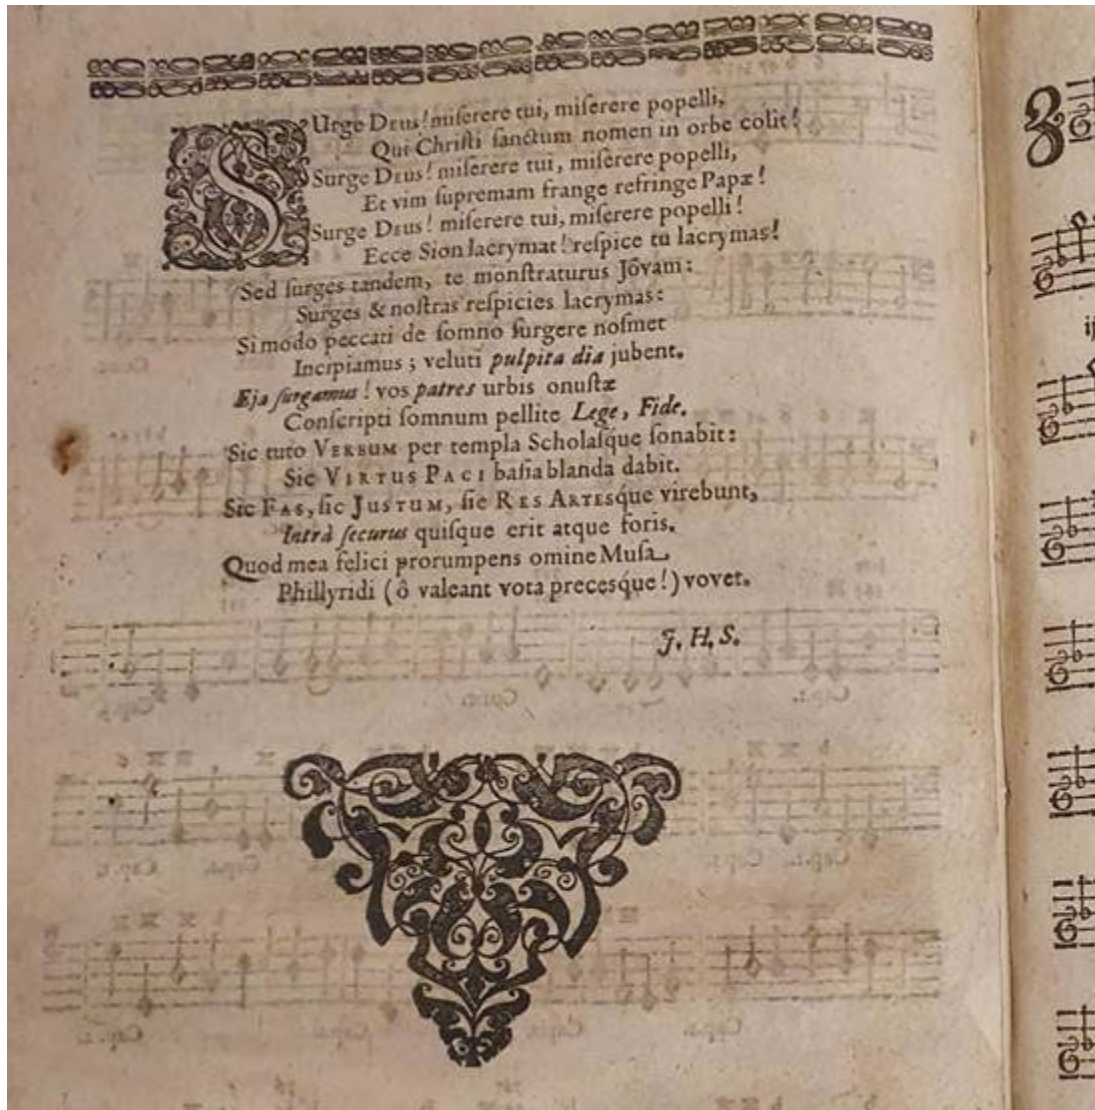 SUrge DEUS! miſerere tui, miſerere popelli,
Qui Chriſti ſanctum nomen in orbe colit!
Surge DEUS! miſerere tui, miſerere popelli,
Et vim ſupremam frange refringe Papæ!
Surge DEUS! miſerere tui, miſerere popelli!
Ecce Sion lacrymat! reſpice tu lacrymas!
Sed ſurges tandem, te monſtraturus Jôvam:
Surges & noſtras reſpicies lacrymas:
Si modo peccati de ſomno ſurgere noſmet
Incipiamus; veluti pulpita dia jubent.
Eja ſurgamus! vos patres urbis onuſtæ
Conſcripti ſomnum pellite Lege, Fide.
Sic tuto VERBUM per templa Scholaſque ſonabit:
Sic VIRTUS PACI baſia blanda dabit.
Sic FAS, ſic JUSTUM, ſic RES ARTESque virebunt,
Intrà ſecurus quiſque erit atque foris.
Quod mea felici prorumpens omine Muſa
Phillyridi (ô valeant vota preceſque!) vovet.
J. H. S.
ij